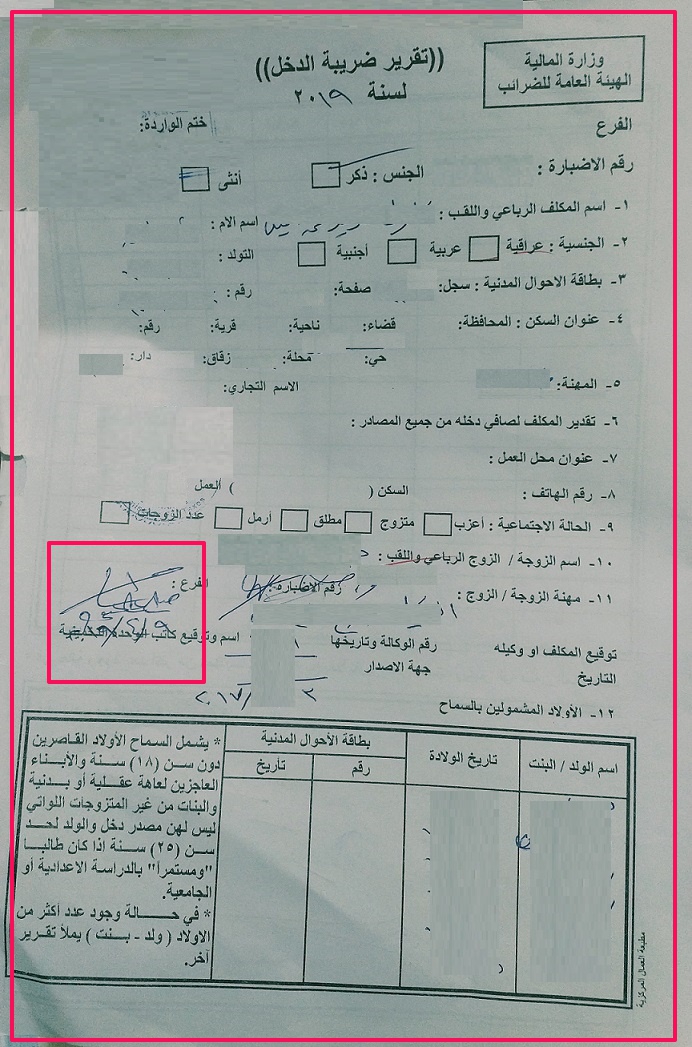 وزارة المالية
الهيئة العامة للضرائب
((تقرير ضريبة الدخل))
لسنة ٢٠١٩
الفرع
ختم الواردة:
رقم الاضبارة :
الجنس : ذكر
أنثى
١- اسم المكلف الرباعي واللقب :
اسم الام :
٢- الجنسية : عراقية
عربية
أجنبية
التولد :
٣- بطاقة الاحوال المدنية : سجل:
صفحة:
رقم :
٤- عنوان السكن : المحافظة:
قضاء:
ناحية:
قرية:
رقم:
حي:
محلة:
زقاق:
دار:
٥- المهنة:
الاسم التجاري:
٦- تقدير المكلف لصافي دخله من جميع المصادر :
٧- عنوان محل العمل :
٨- رقم الهاتف :
السكن (
) العمل
٩- الحالة الاجتماعية : أعزب
متزوج
مطلق
أرمل
عدد الزوجات
١٠- اسم الزوجة / الزوج الرباعي واللقب :
١١- مهنة الزوجة / الزوج :
رقم الاضبارة :
الفرع :
توقيع المكلف او وكيله
رقم الوكالة وتاريخها
اسم وتوقيع كاتب الوحدة التخمينية
التاريخ
جهة الاصدار
١٢- الأولاد المشمولين بالسماح
اسم الولد / البنت
تاريخ الولادة
بطاقة الأحوال المدنية
رقم
تأريخ
* يشمل السماح الأولاد القاصرين
دون سن (١٨) سنة والأبناء
العاجزين لعاهة عقلية أو بدنية
والبنات من غير المتزوجات اللواتي
ليس لهن مصدر دخل والولد لحد
سن (٢٥) سنة اذا كان طالبا
"ومستمراً" بالدراسة الاعدادية أو
الجامعية.
* في حالة وجود عدد أكثر من
الاولاد ( ولد - بنت ) يملأ تقرير
آخر.
مطبعة العمال المركزية